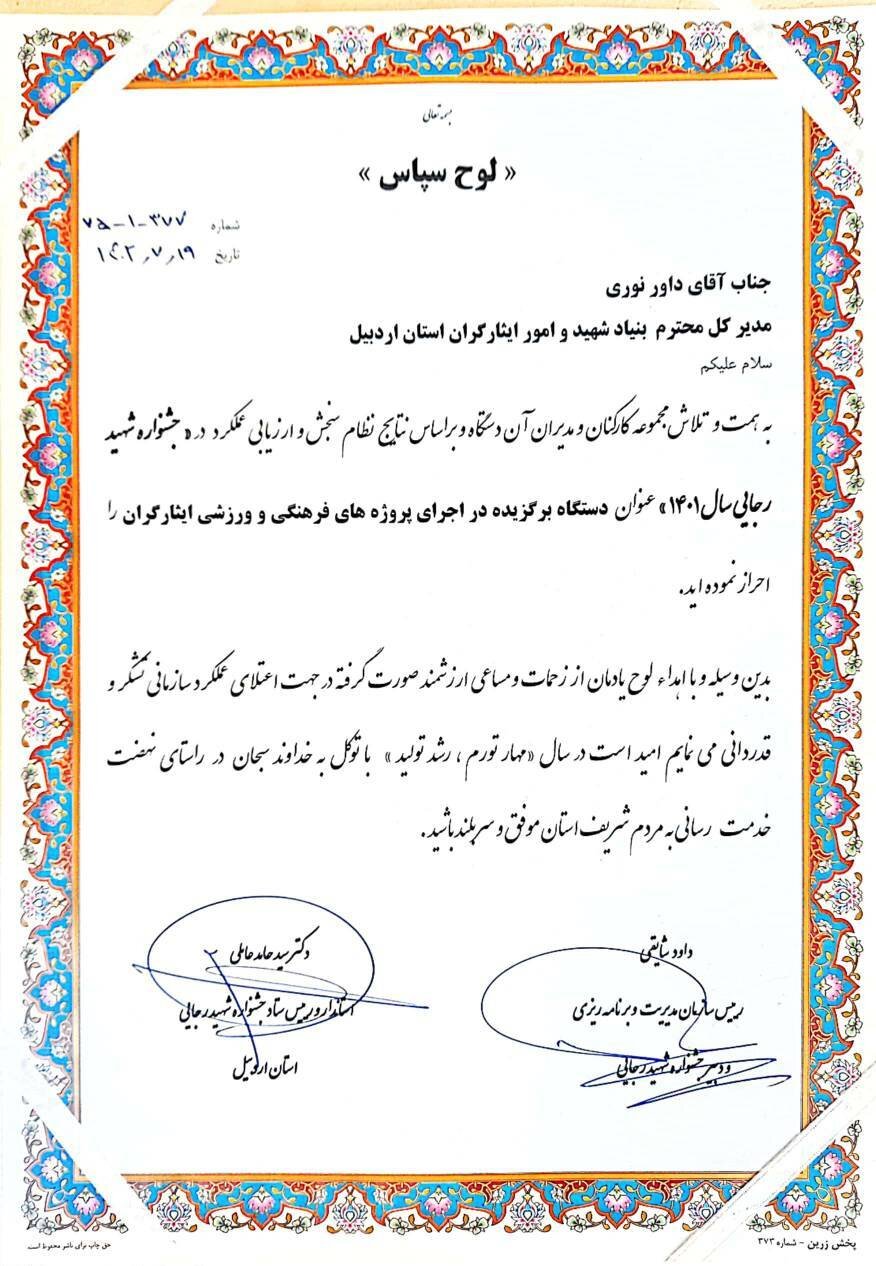 بسمه تعالی
« لوح سپاس »
شماره ۷۵-۱-۳۷۷
تاریخ ۱۴۰۲٫۷٫۱۹
جناب آقای داور نوری
مدیر کل محترم بنیاد شهید و امور ایثارگران استان اردبیل
سلام علیکم
به همت و تلاش مجموعه کارکنان و مدیران آن دستگاه و براساس نتایج نظام سنجش و ارزیابی عملکرد در « جشنواره شهید
رجایی سال ۱۴۰۱» عنوان دستگاه برگزیده در اجرای پروژه های فرهنگی و ورزشی ایثارگران را
احراز نموده اید.
بدین وسیله و با اهداء لوح یادمان از زحمات و مساعی ارزشمند صورت گرفته در جهت اعتلای عملکرد سازمانی تشکر و
قدردانی می نمایم امید است در سال «مهار تورم ، رشد تولید » با توکل به خداوند سبحان در راستای نهضت
خدمت رسانی به مردم شریف استان موفق و سربلند باشید.
داود شایقی
رییس سازمان مدیریت و برنامه ریزی
و دبیر جشنواره شهید رجایی
دکتر سید حامد عاملی
استاندار و رییس ستاد جشنواره شهید رجایی
استان اردبیل
پخش زرین - شماره ۳۷۳
حق چاپ برای ناشر محفوظ است